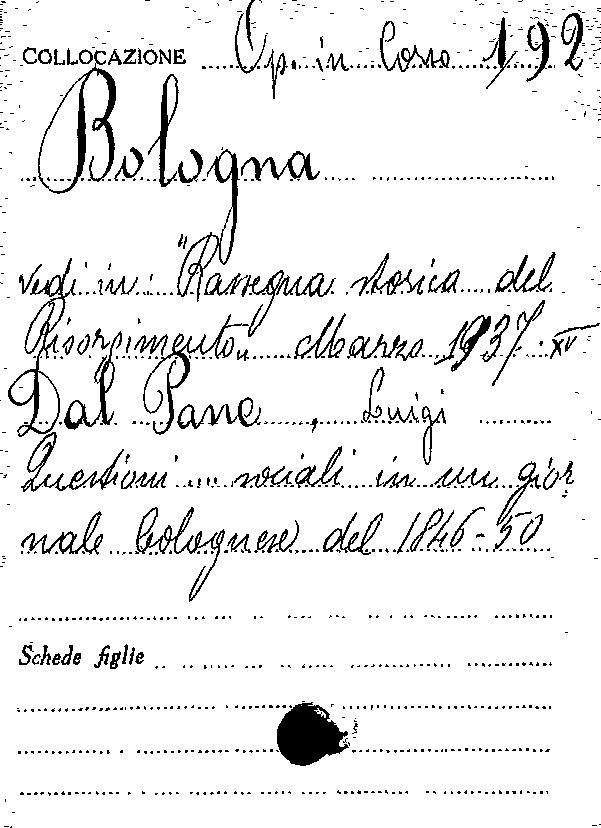 COLLOCAZIONE Op. in Corso 192
Bologna
vedi in: "Rassegna storica del
Risorgimento„ Marzo 1937 · XV
Dal Pane, Luigi
Questioni .... sociali in un gior
nale bolognese del 1846-50
Schede figlie